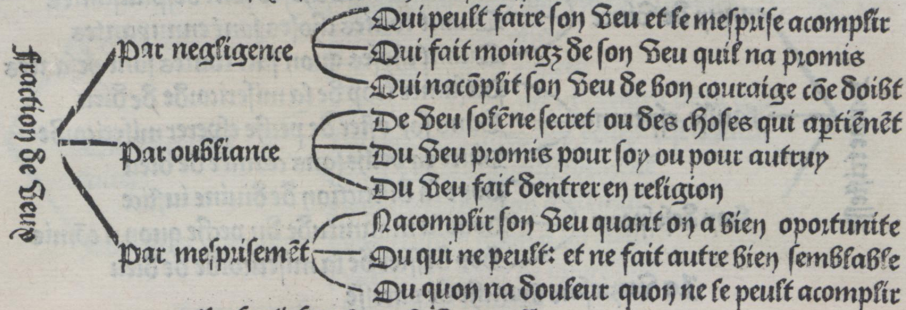 Fraction de veux
Par negligence
Qui peult faire son veu et le mesprise acomplir
Qui fait moingz de son veu quil na promis
Qui nacõplit son veu de bon couraige cõe doibt
Par oubliance
De veu solẽne secret ou des choses qui aptiẽnẽt
Du veu promis pour soy ou pour autruy
Du veu fait dentrer en religion
Par mesprisemẽt
Nacomplir son veu quant on a bien oportunite
Ou qui ne peult: et ne fait autre bien semblable
Ou quon na douleur quon ne le peult acomplir